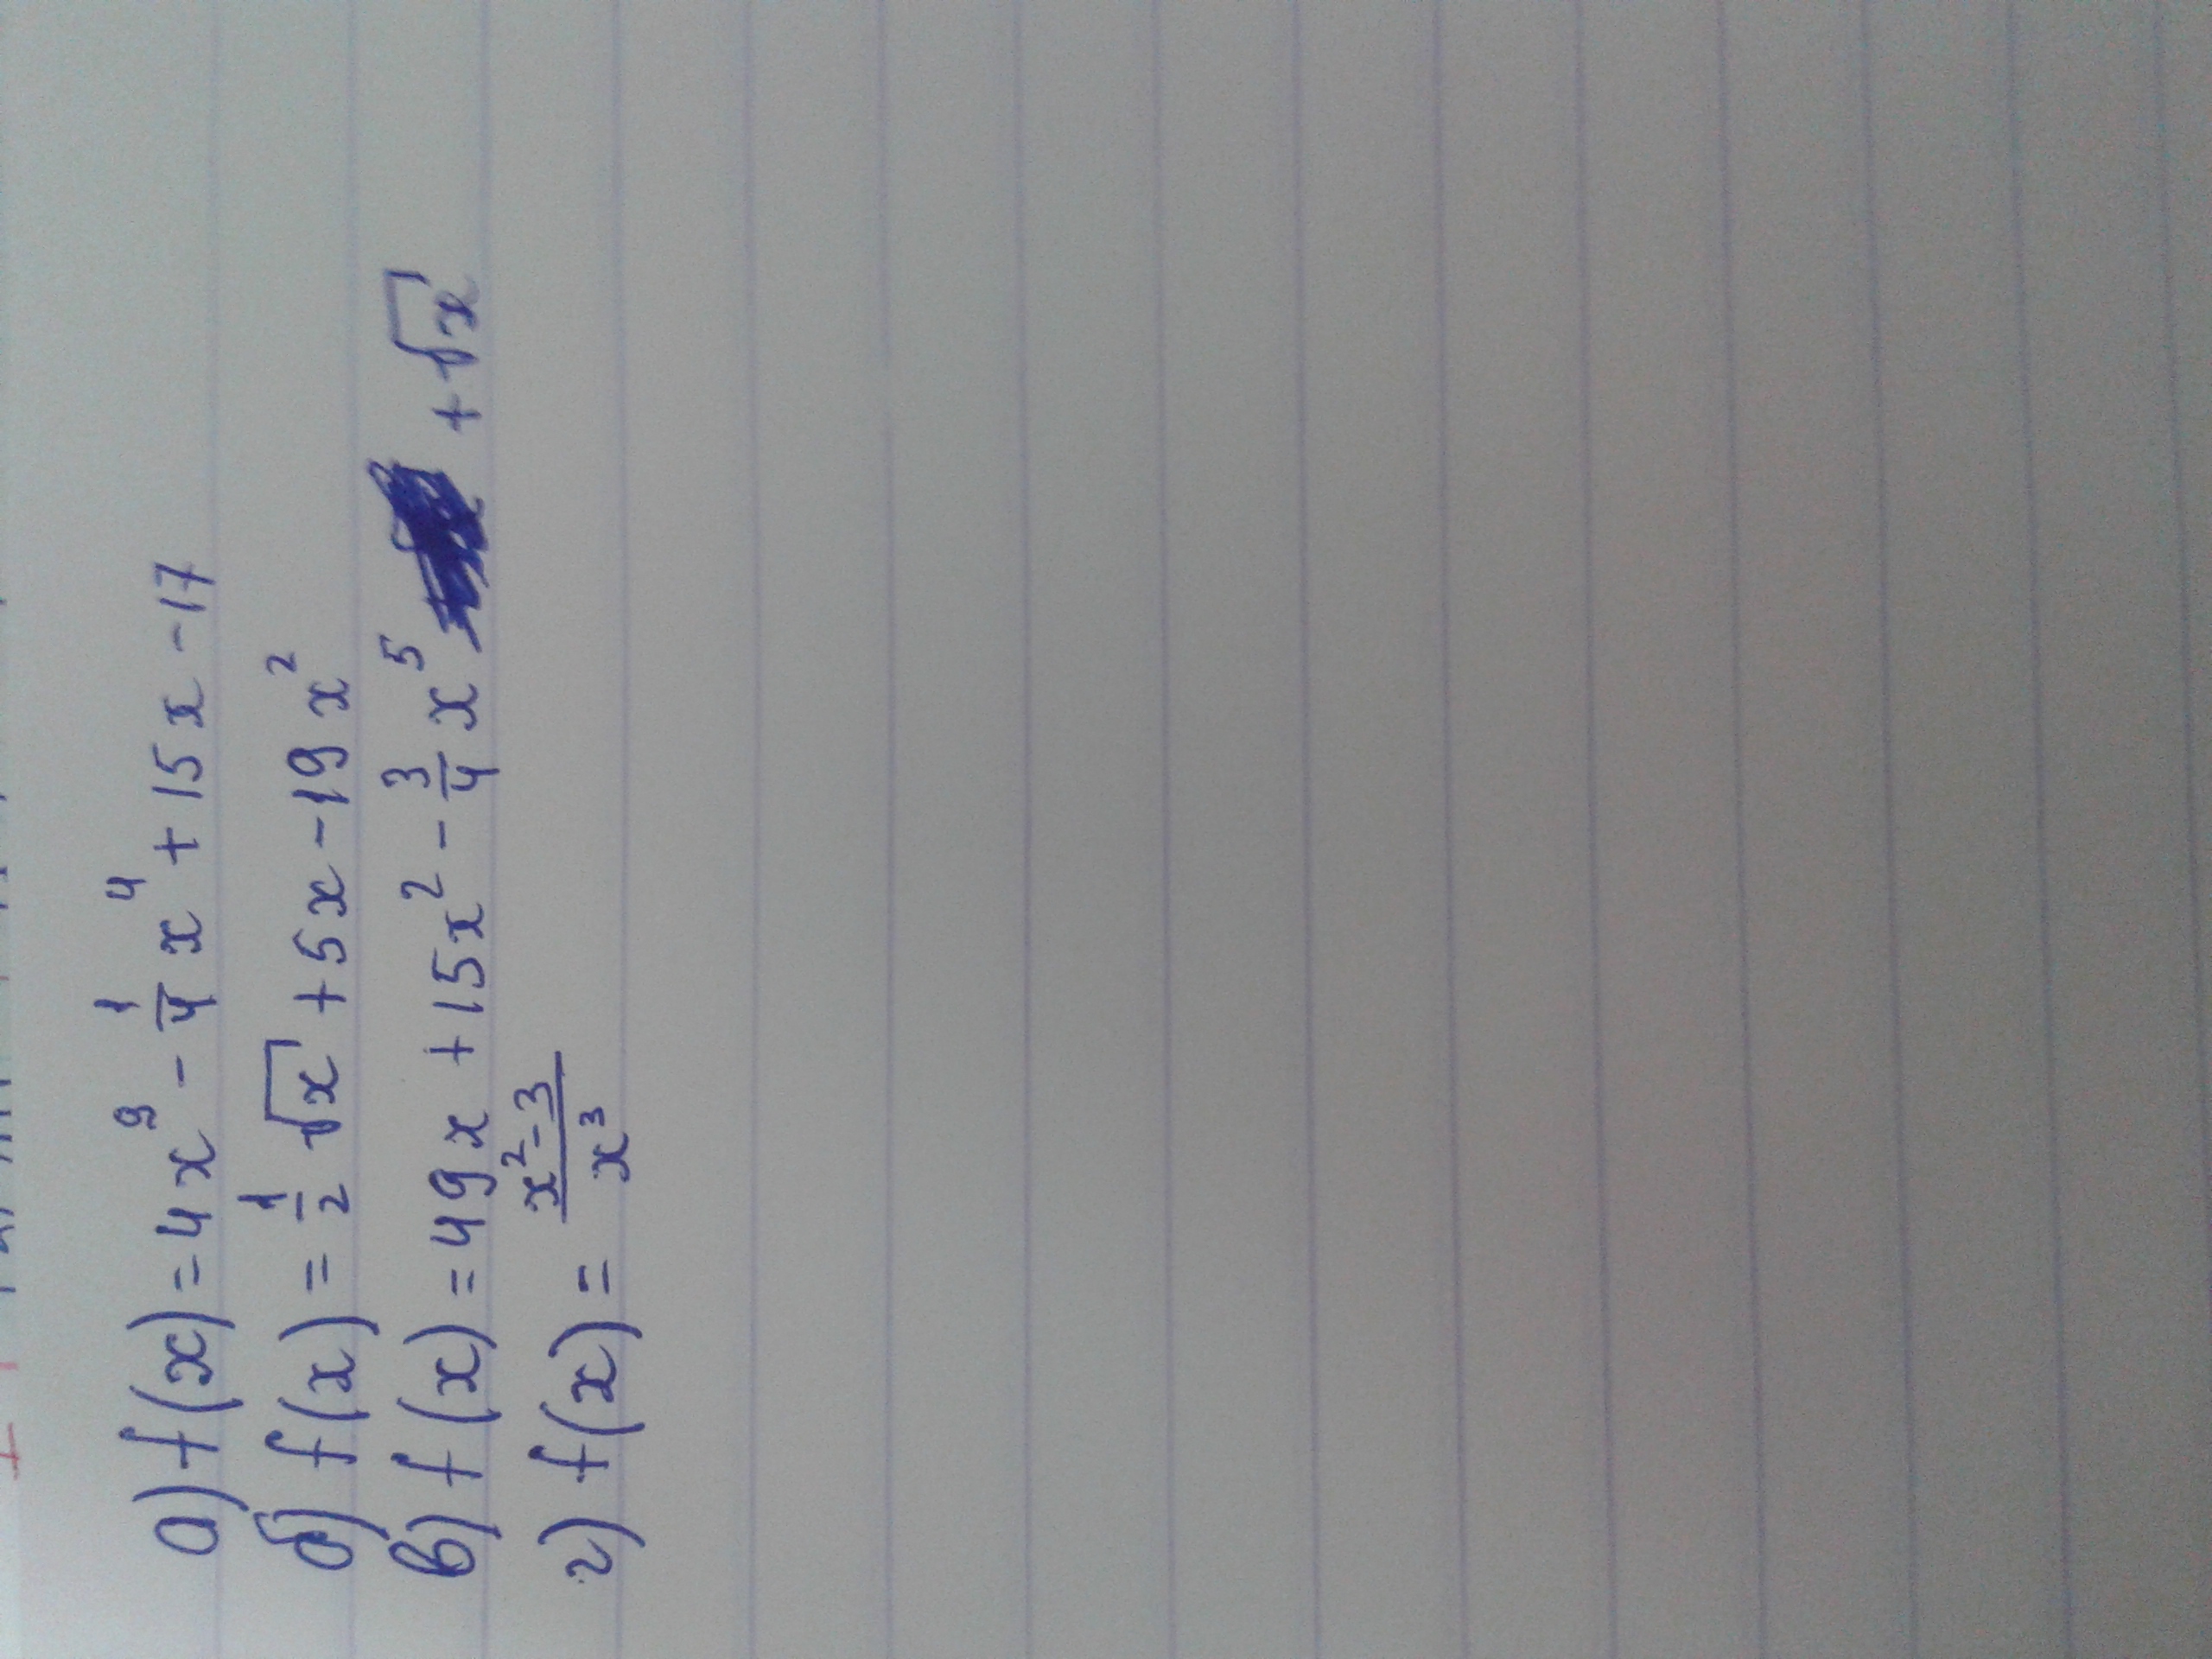 а) f(x)=4x⁹ - 1/4 x⁴ + 15x - 17
б) f(x) = 1/2 √x + 5x - 19x²
в) f(x) = 49x + 15x² - 3/4 x⁵ + √x
г) f(x) = (x² - 3)/x³